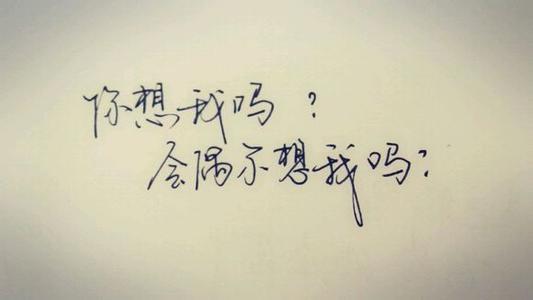 你想我吗？
会偶尔想我吗？